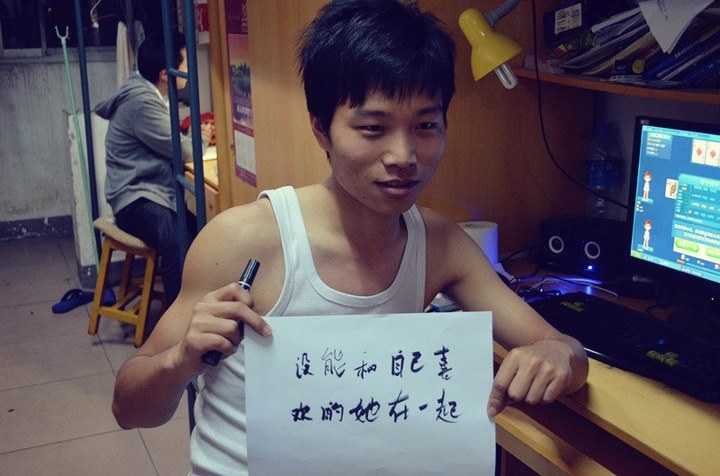 没能和自己喜
欢的她在一起